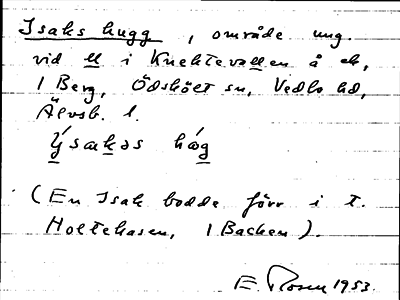 Isaks hugg, område ung.
vid ll i Knektevallen å ek,
1 Berg, Ödskölt sn, Vedbo hd,
Älvsb. l.
Ýsakəs hág
(En Isak bodde förr i t.
Holtehasen, 1 Backen).
E. Rosen 1953.